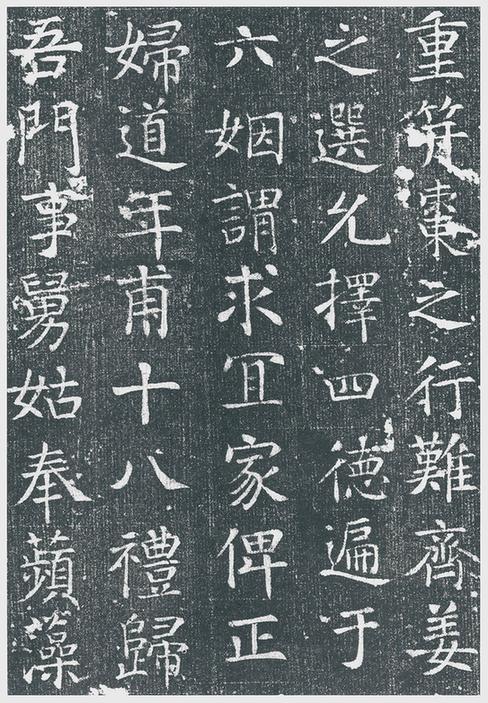 重符之行難齊姜
之選允擇四德遍于
六姻謂求冝家俾正
婦道年甫十八禮歸
吾門事舅姑奉蘋藻